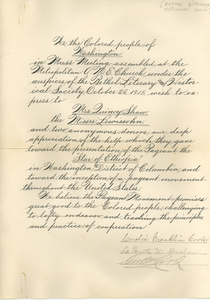 We the Colored people of
Washington
in Mass Meeting assembled at the
Metropolitan A. M. E. Church, under the
auspices of the Bethel Literary & Histor
ical Society October 26, 1915, wish to ex
press to
Mrs Quincy Shaw
the
Messrs Lewissohn
and two anonymous donors, our deep
appreciation of the help which they gave
toward the presentation of the Pageant the
"Star of Ethiopia"
in Washington District of Columbia, and
toward the inception of a pageant movement
throughout the United States.
We believe the Pageant Movement promises
great good to the Colored people, challenging
to lofty endeavor and teaching the principles
and practice of cooperation.